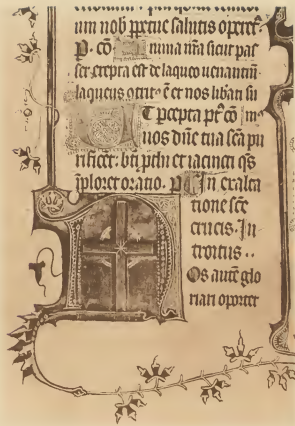 um nob ꝑpetue salutis operet᷑
P. cō Anima nr̄a sicut pas
ser erepta est de laqueo uenantiū
laqueus ↄtrit᷑ ē et nos libati su
Ut ꝑcepta pr̄ cō in
nos dn̄e tua scā pu
rificet: bt̄i et iacinct qs
īploret oratio. In exalta
tione scē
crucis. In
troitus ..
Os autē glo
riari oportet